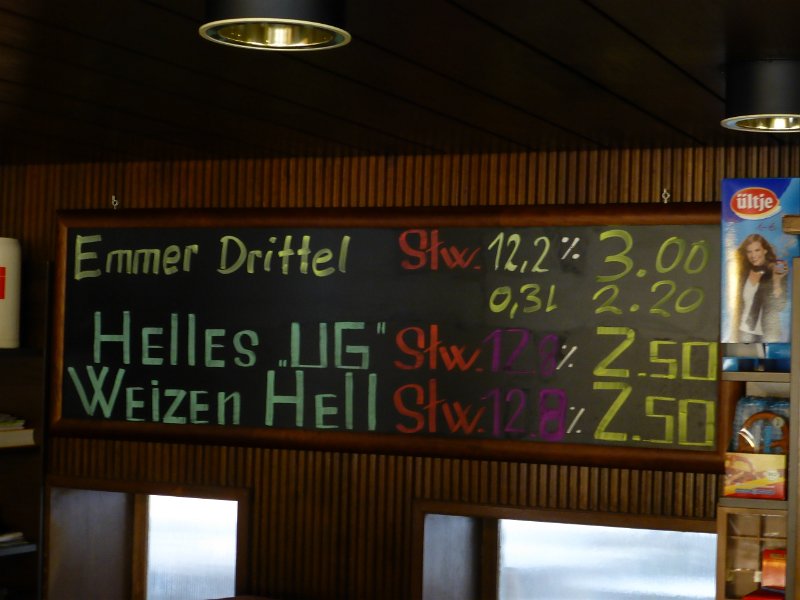 Emmer Drittel Stw. 12,2% 3.00
0,3l 2.20
Helles „UG" Stw. 12.8% 2.50
Weizen Hell Stw. 12.8% 2.50
ültje